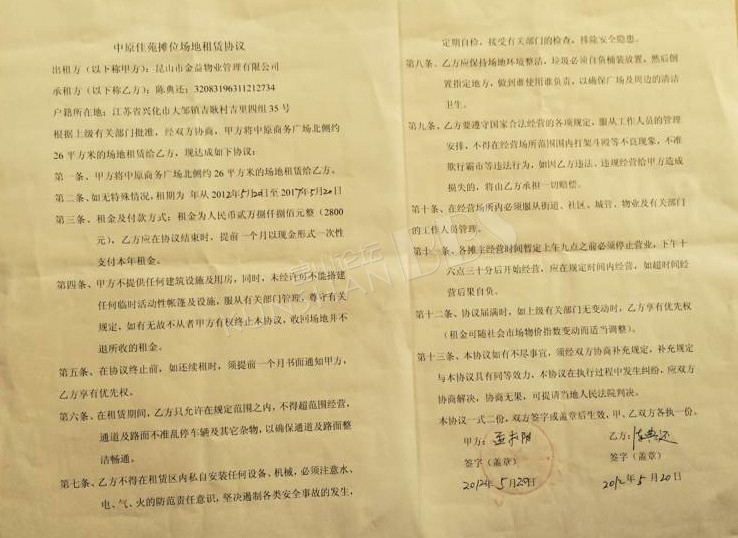 中原佳苑摊位场地租赁协议
出租方（以下称甲方）：昆山市金益物业管理有限公司
承租方（以下称乙方）：陈典还：32083196311212734
户籍所在地：江苏省兴化市大邹镇吉耿村吉里四组35号
根据上级有关部门批准，经双方协商，甲方将中原商务广场北侧约
26平方米的场地租赁给乙方，现达成如下协议：
第一条、甲方将中原商务广场北侧约26平方米的场地租赁给乙方。
第二条、如无特殊情况，租期为 年从2012年5月20日至2017年5月20日
第三条、租金及付款方式：租金为人民币贰万捌仟捌佰元整（2800
元），乙方应在协议结束时，提前一个月以现金形式一次性
支付本年租金。
第四条、甲方不提供任何建筑设施及用房，同时，未经许可不能搭建
任何临时活动性帐篷及设施，服从有关部门管理，尊守有关
规定，如有无故不从者甲方有权终止本协议，收回场地并不
退所收的租金。
第五条、在协议终止前，如还续租时，须提前一个月书面通知甲方，
乙方享有优先权。
第六条、在租赁期间，乙方只允许在规定范围之内，不得超范围经营，
通道及路面不准乱停车辆及其它杂物，以确保通道及路面整
洁畅通。
第七条、乙方不得在租赁区内私自安装任何设备、机械，必须注意水、
电、气、火的防范责任意识，坚决遏制各类安全事故的发生，
定期自检，接受有关部门的检查，排除安全隐患。
第八条、乙方应保持场地环境整洁，垃圾必须自负桶装放置，然后倒
置指定地方，做到谁使用谁负责，以确保广场及周边的清洁
卫生。
第九条、乙方要遵守国家合法经营的各项规定，服从工作人员的管理
安排，不得在经营场所范围国内打架斗殴等不良现象，不准
欺行霸市等违法行为，如因乙方违法、违规经营给甲方造成
损失的，将由乙方承担一切赔偿。
第十条、在经营场所内必须服从街道、社区、城管、物业及有关部门
的工作人员管理。
第十一条、各摊主经营时间暂定上午九点之前必须停止营业，下午十
六点三十分后开始经营，应在规定时间内经营，如超时间经
营后果自负。
第十二条、协议届满时，如上级有关部门无变动时，乙方享有优先权
（租金可随社会市场物价指数变动而适当调整）。
第十三条、本协议如有不尽事宜，须经双方协商补充规定，补充规定
与本协议具有同等效力、本协议在执行过程中发生纠纷，应双方
协商解决，协商无果，可提请当地人民法院判决。
本协议一式二份，双方签字或盖章后生效，甲、乙双方各执一份。
甲方： 乙方：陈典还
签字（盖章） 签字（盖章）
2012年5月20日 2012年5月20日